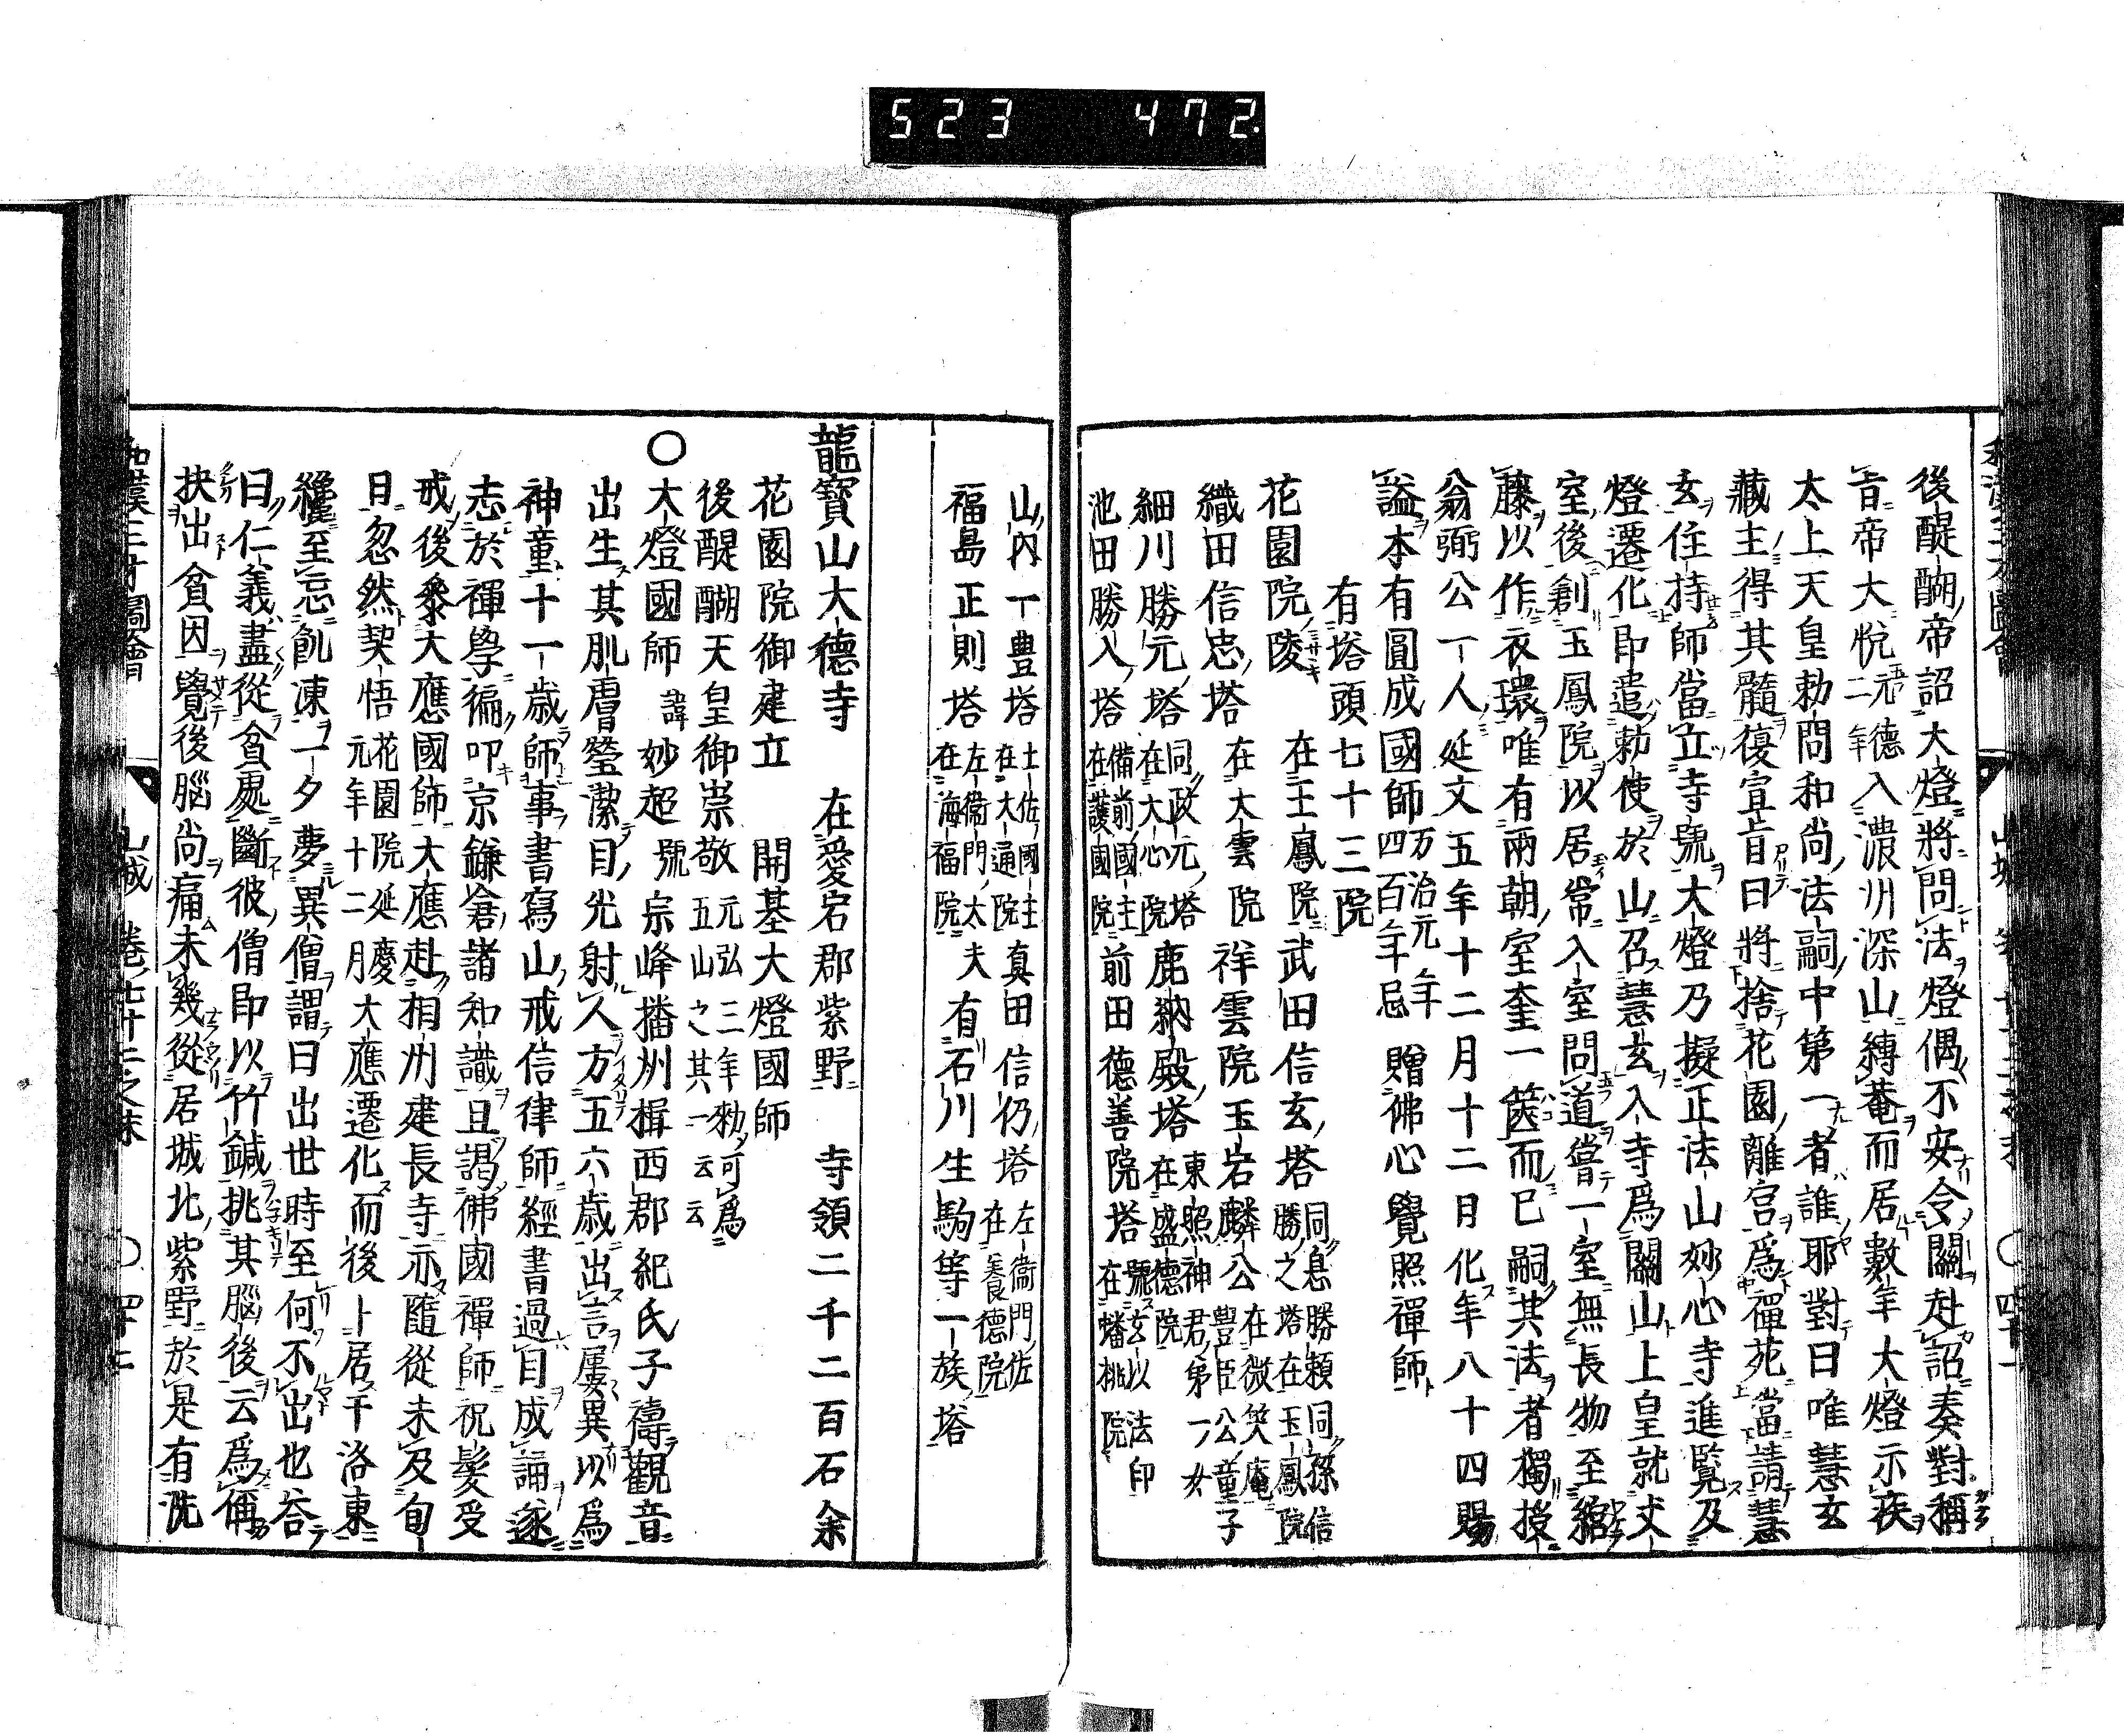 523 472
後醍醐帝詔大燈將問法燈偶不安令關赴詔奏對稱
旨帝大悅元德二年入濃州深山縳菴而居數年大燈示疾
太上天皇勅問和尚法嗣中第一者誰耶對曰唯慧玄
藏主得其髓復宣旨曰將捨花園離宮爲禪苑當請慧
玄住持師當立寺號大燈乃擬正法山妙心寺進覧及
燈遷化即遣勅使於山召慧玄入寺爲關山上皇就丈
室後創玉鳳院以居常入室問道嘗一室無長物至綰
藤以作衣環唯有兩朝室奎一篋而已嗣其法者獨授
翁弼公一人延文五年十二月十二日化年八十四賜
謚本有圓成國師万治元年四百年忌贈佛心覺照禪師
有塔頭七十三院
花園院陵 在玉鳳院 武田信玄塔 同息勝頼同孫信勝之塔在玉鳳院
織田信忠塔 在大雲院 祥雲院玉岩麟公 在微笑庵豊臣公童子
細川勝元塔 同政元塔在大心院 鹿納殿塔 東照神君第一女在盛德院
池田勝入塔 備前國主在護國院 前田德善院塔 號玄以法印在蟠桃院
山内一豊塔 土佐國主在大通院 真田信仍塔 左衞門佐在養德院
福島正則塔 左衞門太夫在海福院 有石川生駒等一族塔
龍寶山大德寺 在愛宕郡紫野 寺領二千二百石余
花園院御建立 開基大燈國師
後醍醐天皇御崇敬 元弘三年勅可爲五山之其一云云
○大燈國師 諱妙超號宗峰播州揖西郡紀氏子禱觀音
出生其肌膚瑩潔目光射人方五六歳出言屢異以爲
神童十一歳師事書寫山戒信律師經書過目成誦遂
志於禪學徧叩京鎌倉諸知識且謁佛國禪師祝髮受
戒後叅大應國師大應赴相州建長寺亦隨從未及旬
日忽然契悟 花園院延慶元年十二月大應遷化而後卜居于洛東
纔至忘飢凍一夕夢異僧謂曰出世時至何不出也荅
曰仁義盡從貧處斷彼僧即以竹鍼挑其腦後云爲偁
抉出貧因覺後腦尚痛未幾從居城北紫野於是有洗